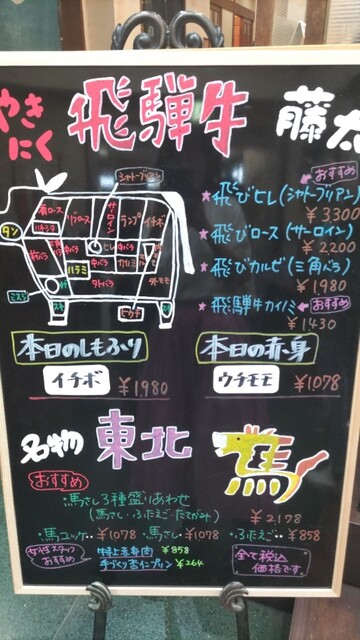 やき
にく
飛騨牛
藤太
シャトーブリアン
肩ロース
リブロース
サーロイン
ランプ
イチボ
タン
ヒレ
カイノミ
ハラミ
中バラ
タテバラ
ミスジ
ヒウチ
外モモ
おすすめ
★飛びヒレ(シャトーブリアン)
¥3300
★飛びロース(サーロイン)
¥2200
★飛びカルビ(三角バラ)
¥1980
★飛騨牛カイノミ
おすすめ
¥1430
本日のしもふり
イチボ ¥1,980
本日の赤身
ウチモモ ¥1,078
名物 東北 馬
おすすめ
・馬さし3種盛りあわせ
(馬さし・ふたえご・たてがみ) ¥2,178
・馬ユッケ‥¥1078 ・馬さし‥¥1078 ・ふたえご‥¥858
女性スタッフ
おすすめ
¥858
手づくり杏仁プリン ¥264
全て税込
価格です。